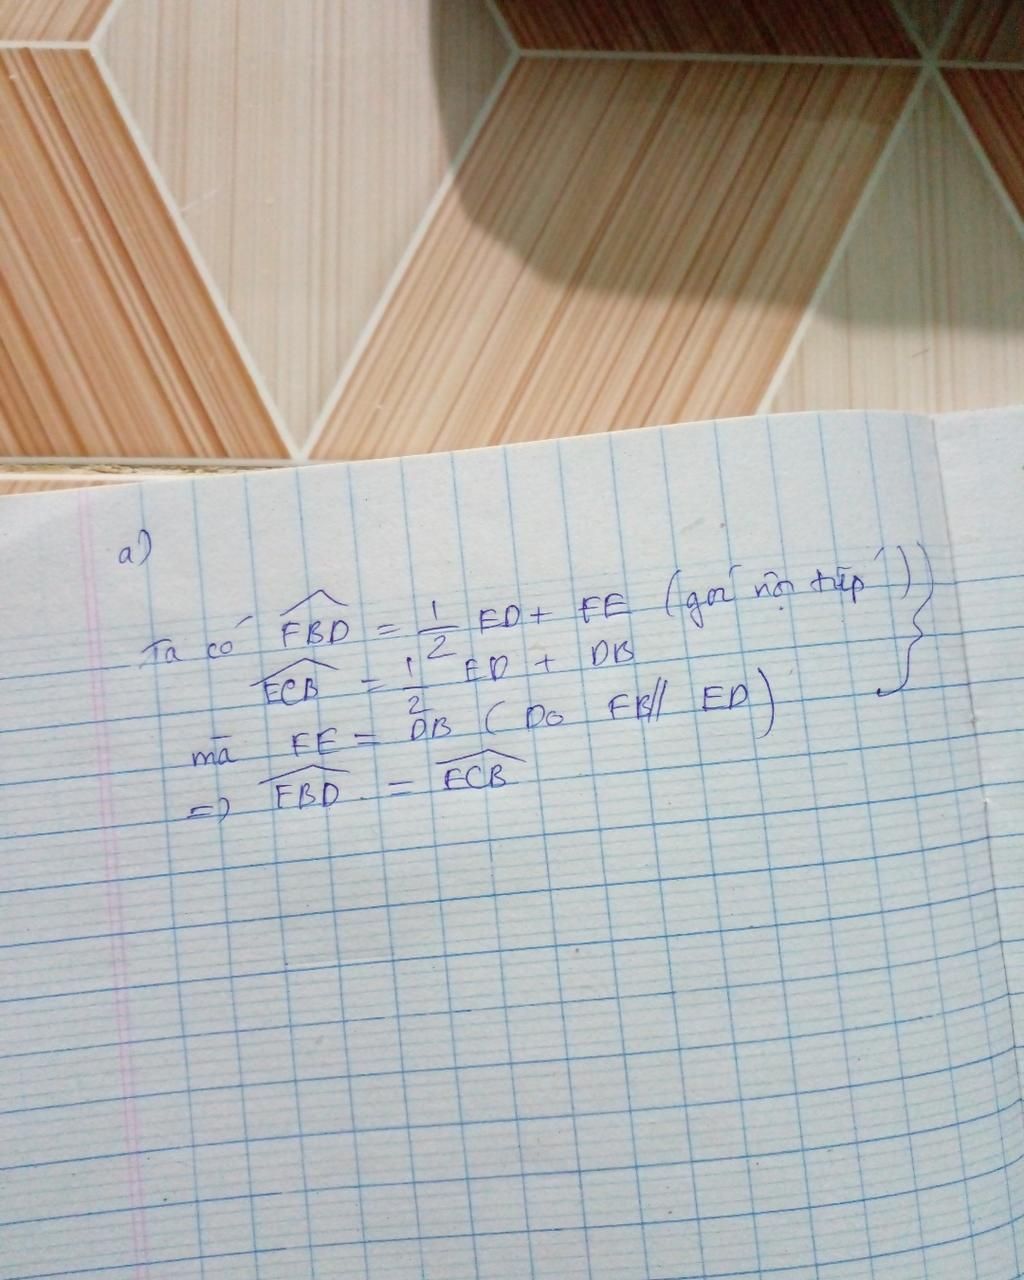 a)
Ta có FBD = 1/2 ED + FE (góc nội tiếp)
ECB = 1/2 ED + DB
mà FE = DB (Do FB // ED)
=> FBD = ECB